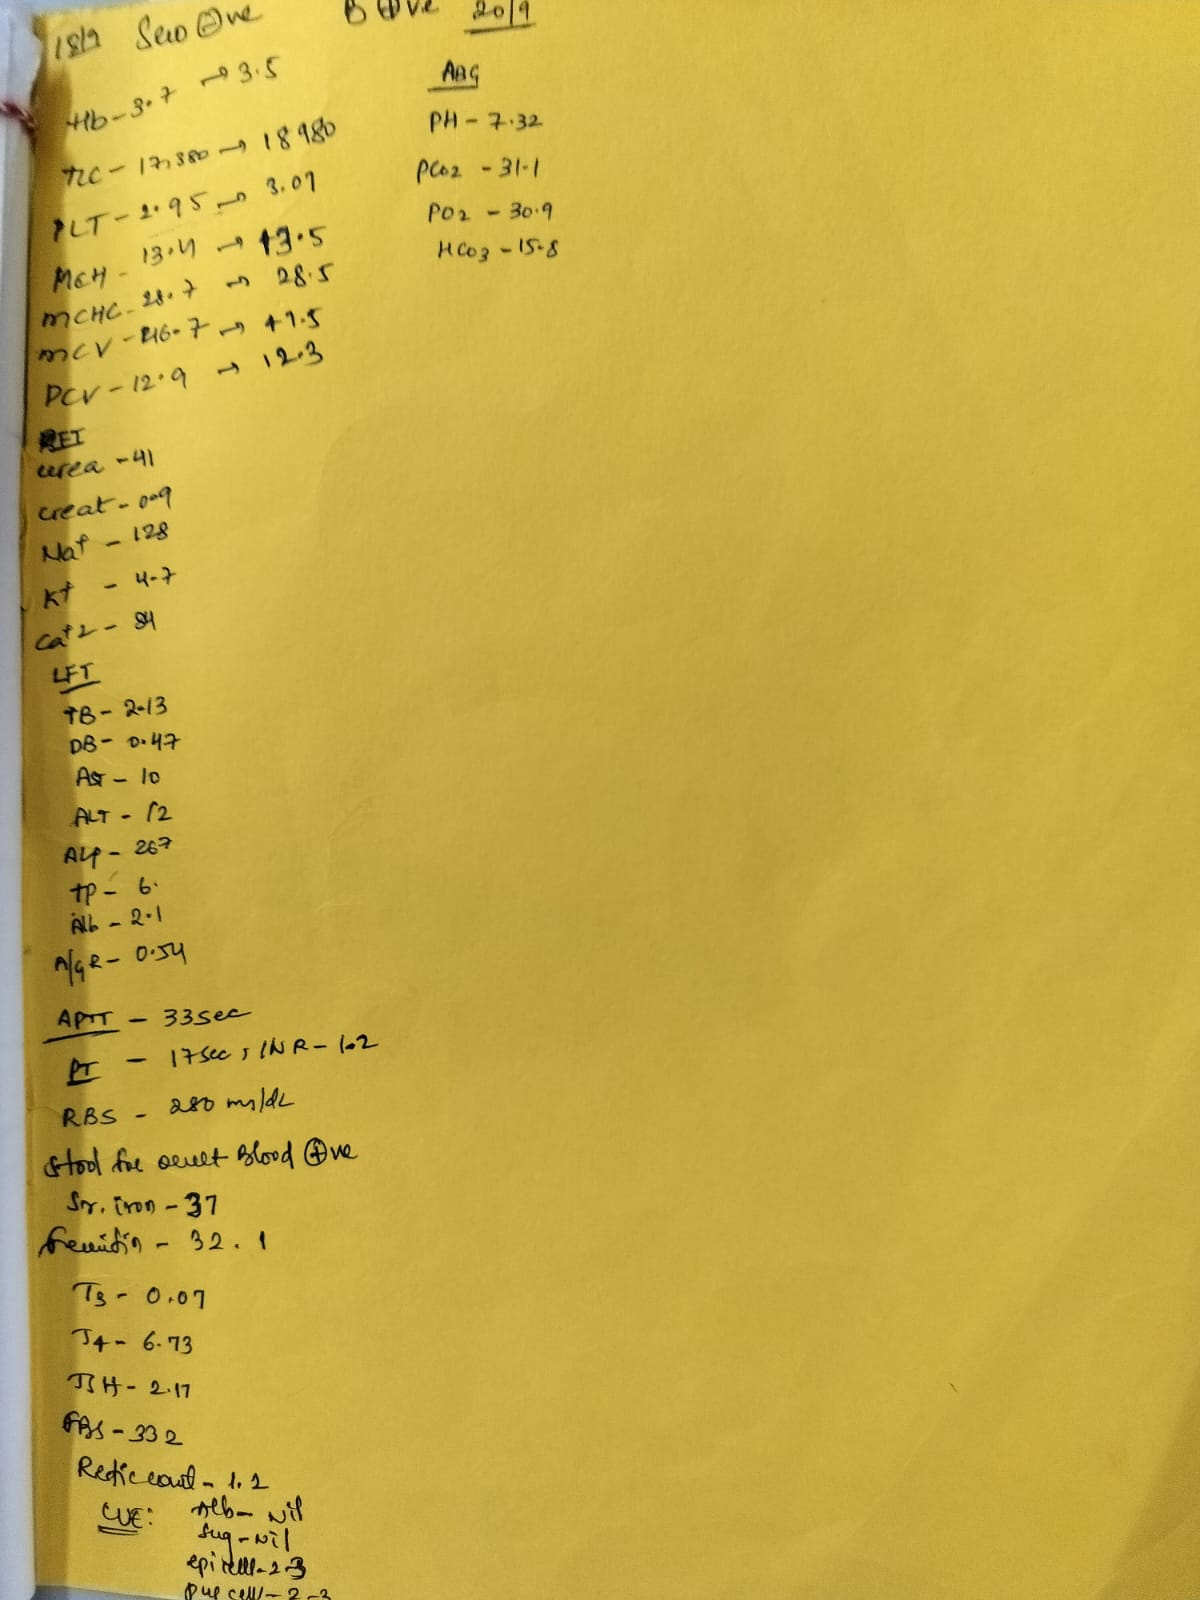 18/9 Sero ⊖ve B ⊕ve 20/9
Hb - 3.7 → 3.5
TLC - 17,380 → 18980
PLT - 2.95 → 3.07
MCH - 13.4 → 13.5
MCHC - 28.7 → 28.5
MCV - 46.7 → 47.5
PCV - 12.9 → 12.3
urea - 41
creat - 0.9
Na+ - 128
K+ - 4.7
Ca+2 - 84
LFT
TB - 2.13
DB - 0.47
AST - 10
ALT - 12
ALP - 267
TP - 6.
Alb - 2.1
A/G R - 0.54
APTT - 33sec
PT - 17sec, INR - 1.2
RBS - 280 mg/dL
Stool for occult Blood ⊕ve
Sr. iron - 37
Ferritin - 32.1
T3 - 0.07
T4 - 6.73
TSH - 2.17
FBS - 332
Retic count - 1.2
CUE: Alb - Nil
Sug - Nil
epi cell - 2-3
pus cell - 2-3
ABG
PH - 7.32
PCO2 - 31.1
PO2 - 30.9
HCO3 - 15.8